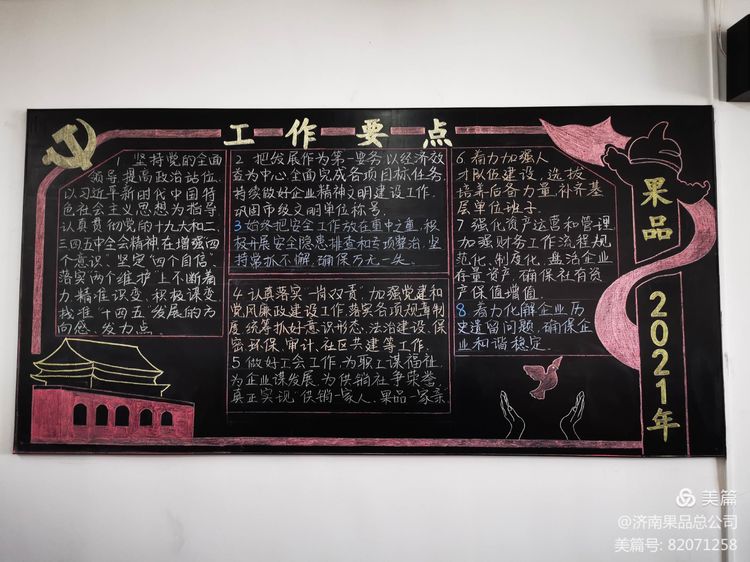 工作要点
1 坚持党的全面
领导 提高政治站位,
以习近平新时代中国特
色社会主义思想为指导,
认真贯彻党的十九大和二
三四五中全会精神在增强"四
个意识"、坚定"四个自信"、
落实"两个维护"上不断着
力,精准识变、积极谋变,
找准"十四五"发展的方
向感、发力点.
2 把发展作为第一要务以经济效
益为中心全面完成各项目标任务.
持续做好企业精神文明建设工作,
巩固市级文明单位称号.
3 始终把安全工作放在重中之重,积
极开展安全隐患排查和专项整治,坚
持常抓不懈,确保万无一失.
4 认真落实"一岗双责"加强党建和
党风廉政建设工作,落实各项规章制
度,统筹抓好意识形态、法治建设、保
密、环保、审计、社区共建等工作.
5 做好工会工作,为职工谋福祉,
为企业谋发展,为供销社争荣誉,
真正实现"供销一家人,果品一家亲"
6 着力加强人
才队伍建设,选拔
培养后备力量,补齐基
层单位班子.
7 强化资产运营和管理,
加强财务工作流程规
范化、制度化,盘活企业
存量资产,确保社有资
产保值增值.
8 着力化解企业历
史遗留问题,确保企
业和谐稳定.
果品 2021年
美篇
@济南果品总公司
美篇号: 82071258